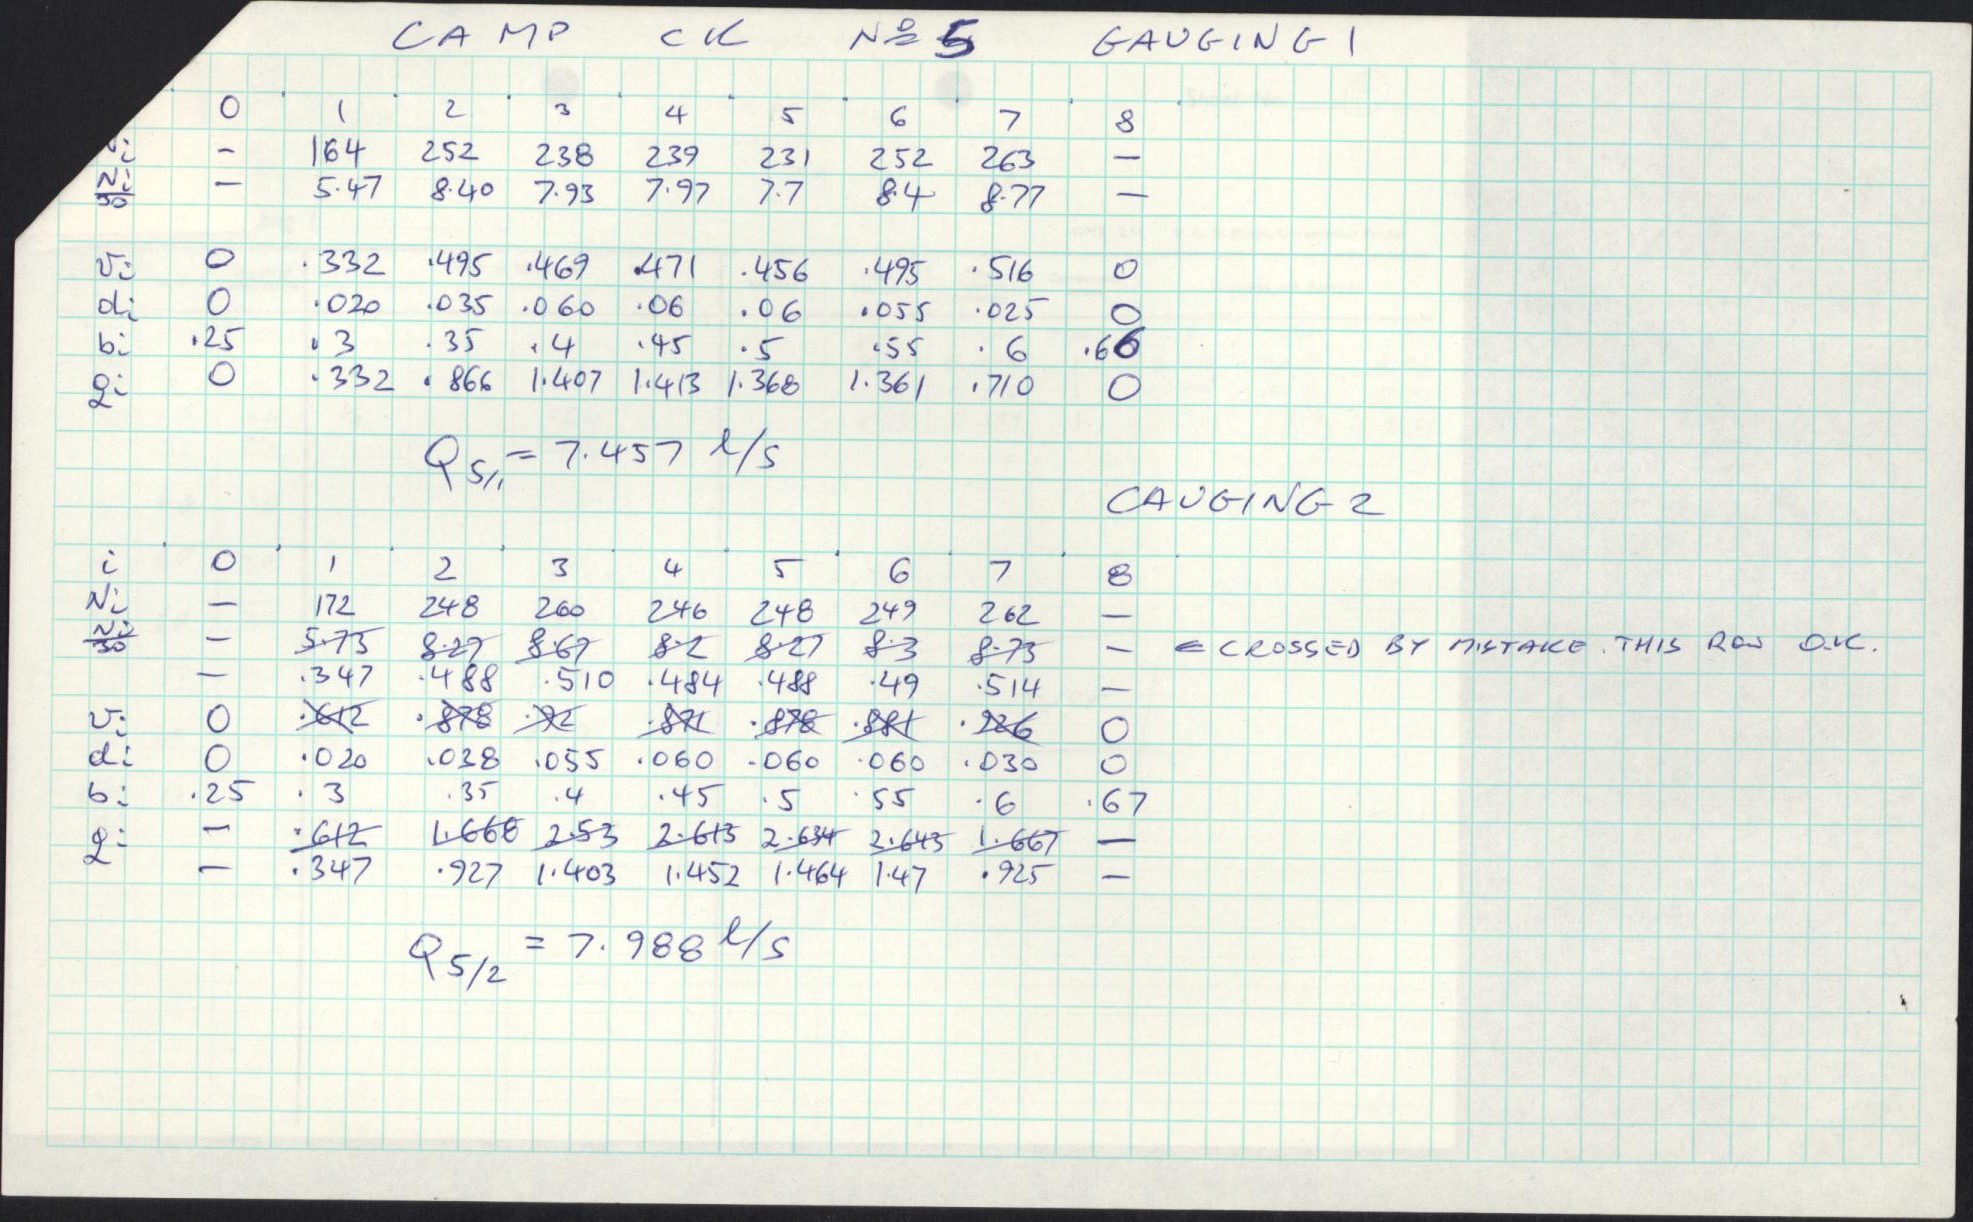 CAMP CK Nº 5 GAUGING 1
0 1 2 3 4 5 6 7 8
Ni - 164 252 238 239 231 252 263 -
Ni/30 - 5.47 8.40 7.93 7.97 7.7 8.4 8.77 -
vi 0 .332 .495 .469 .471 .456 .495 .516 0
di 0 .020 .035 .060 .06 .06 .055 .025 0
bi .25 .3 .35 .4 .45 .5 .55 .6 .66
qi 0 .332 .866 1.407 1.413 1.368 1.361 .710 0
Q5/1 = 7.457 l/s
GAUGING 2
i 0 1 2 3 4 5 6 7 8
Ni - 172 248 260 246 248 249 262 -
Ni/30 - 5.73 8.27 8.67 8.2 8.27 8.3 8.73 - ← CROSSED BY MISTAKE. THIS ROW O.K.
- .347 .488 .510 .484 .488 .49 .514 -
vi 0 .612 .878 .92 .871 .878 .881 .926 0
di 0 .020 .038 .055 .060 .060 .060 .030 0
bi .25 .3 .35 .4 .45 .5 .55 .6 .67
qi - .612 1.668 2.53 2.613 2.634 2.643 1.667 -
- .347 .927 1.403 1.452 1.464 1.47 .925 -
Q5/2 = 7.988 l/s